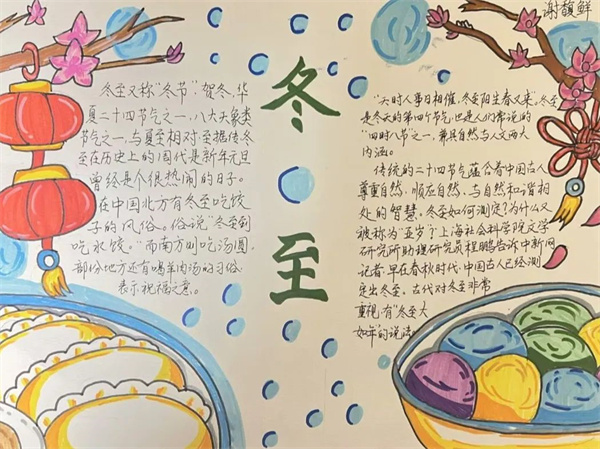 谢馥鲜
冬至
冬至又称"冬节"贺冬,华
夏二十四节气之一,八大天象类
节气之一,与夏至相对,至据传冬
至在历史上的周代是新年元旦
曾经是个很热闹的日子。
在中国北方有冬至吃饺
子的风俗。俗说"冬至到
吃水饺。"而南方则吃汤圆,
部份地方还有喝羊肉汤的习俗,
表示祝福之意。
"天时人事日相催,冬至阳生春又来"冬至
是冬天的第四个节气,也是人们常说的
"四时八节"之一,兼具自然与人文两大
内涵。
传统的二十四节气蕴含着中国古人
尊重自然、顺应自然、与自然和谐相
处的智慧。冬至如何测定?为什么又
被称为"亚岁"?上海社会科学院文学
研究所助理研究员程鹏告诉中新网
记者,早在春秋时代,中国古人已经测
定出冬至。古代对冬至非常
重视,有"冬至大
如年"的说法